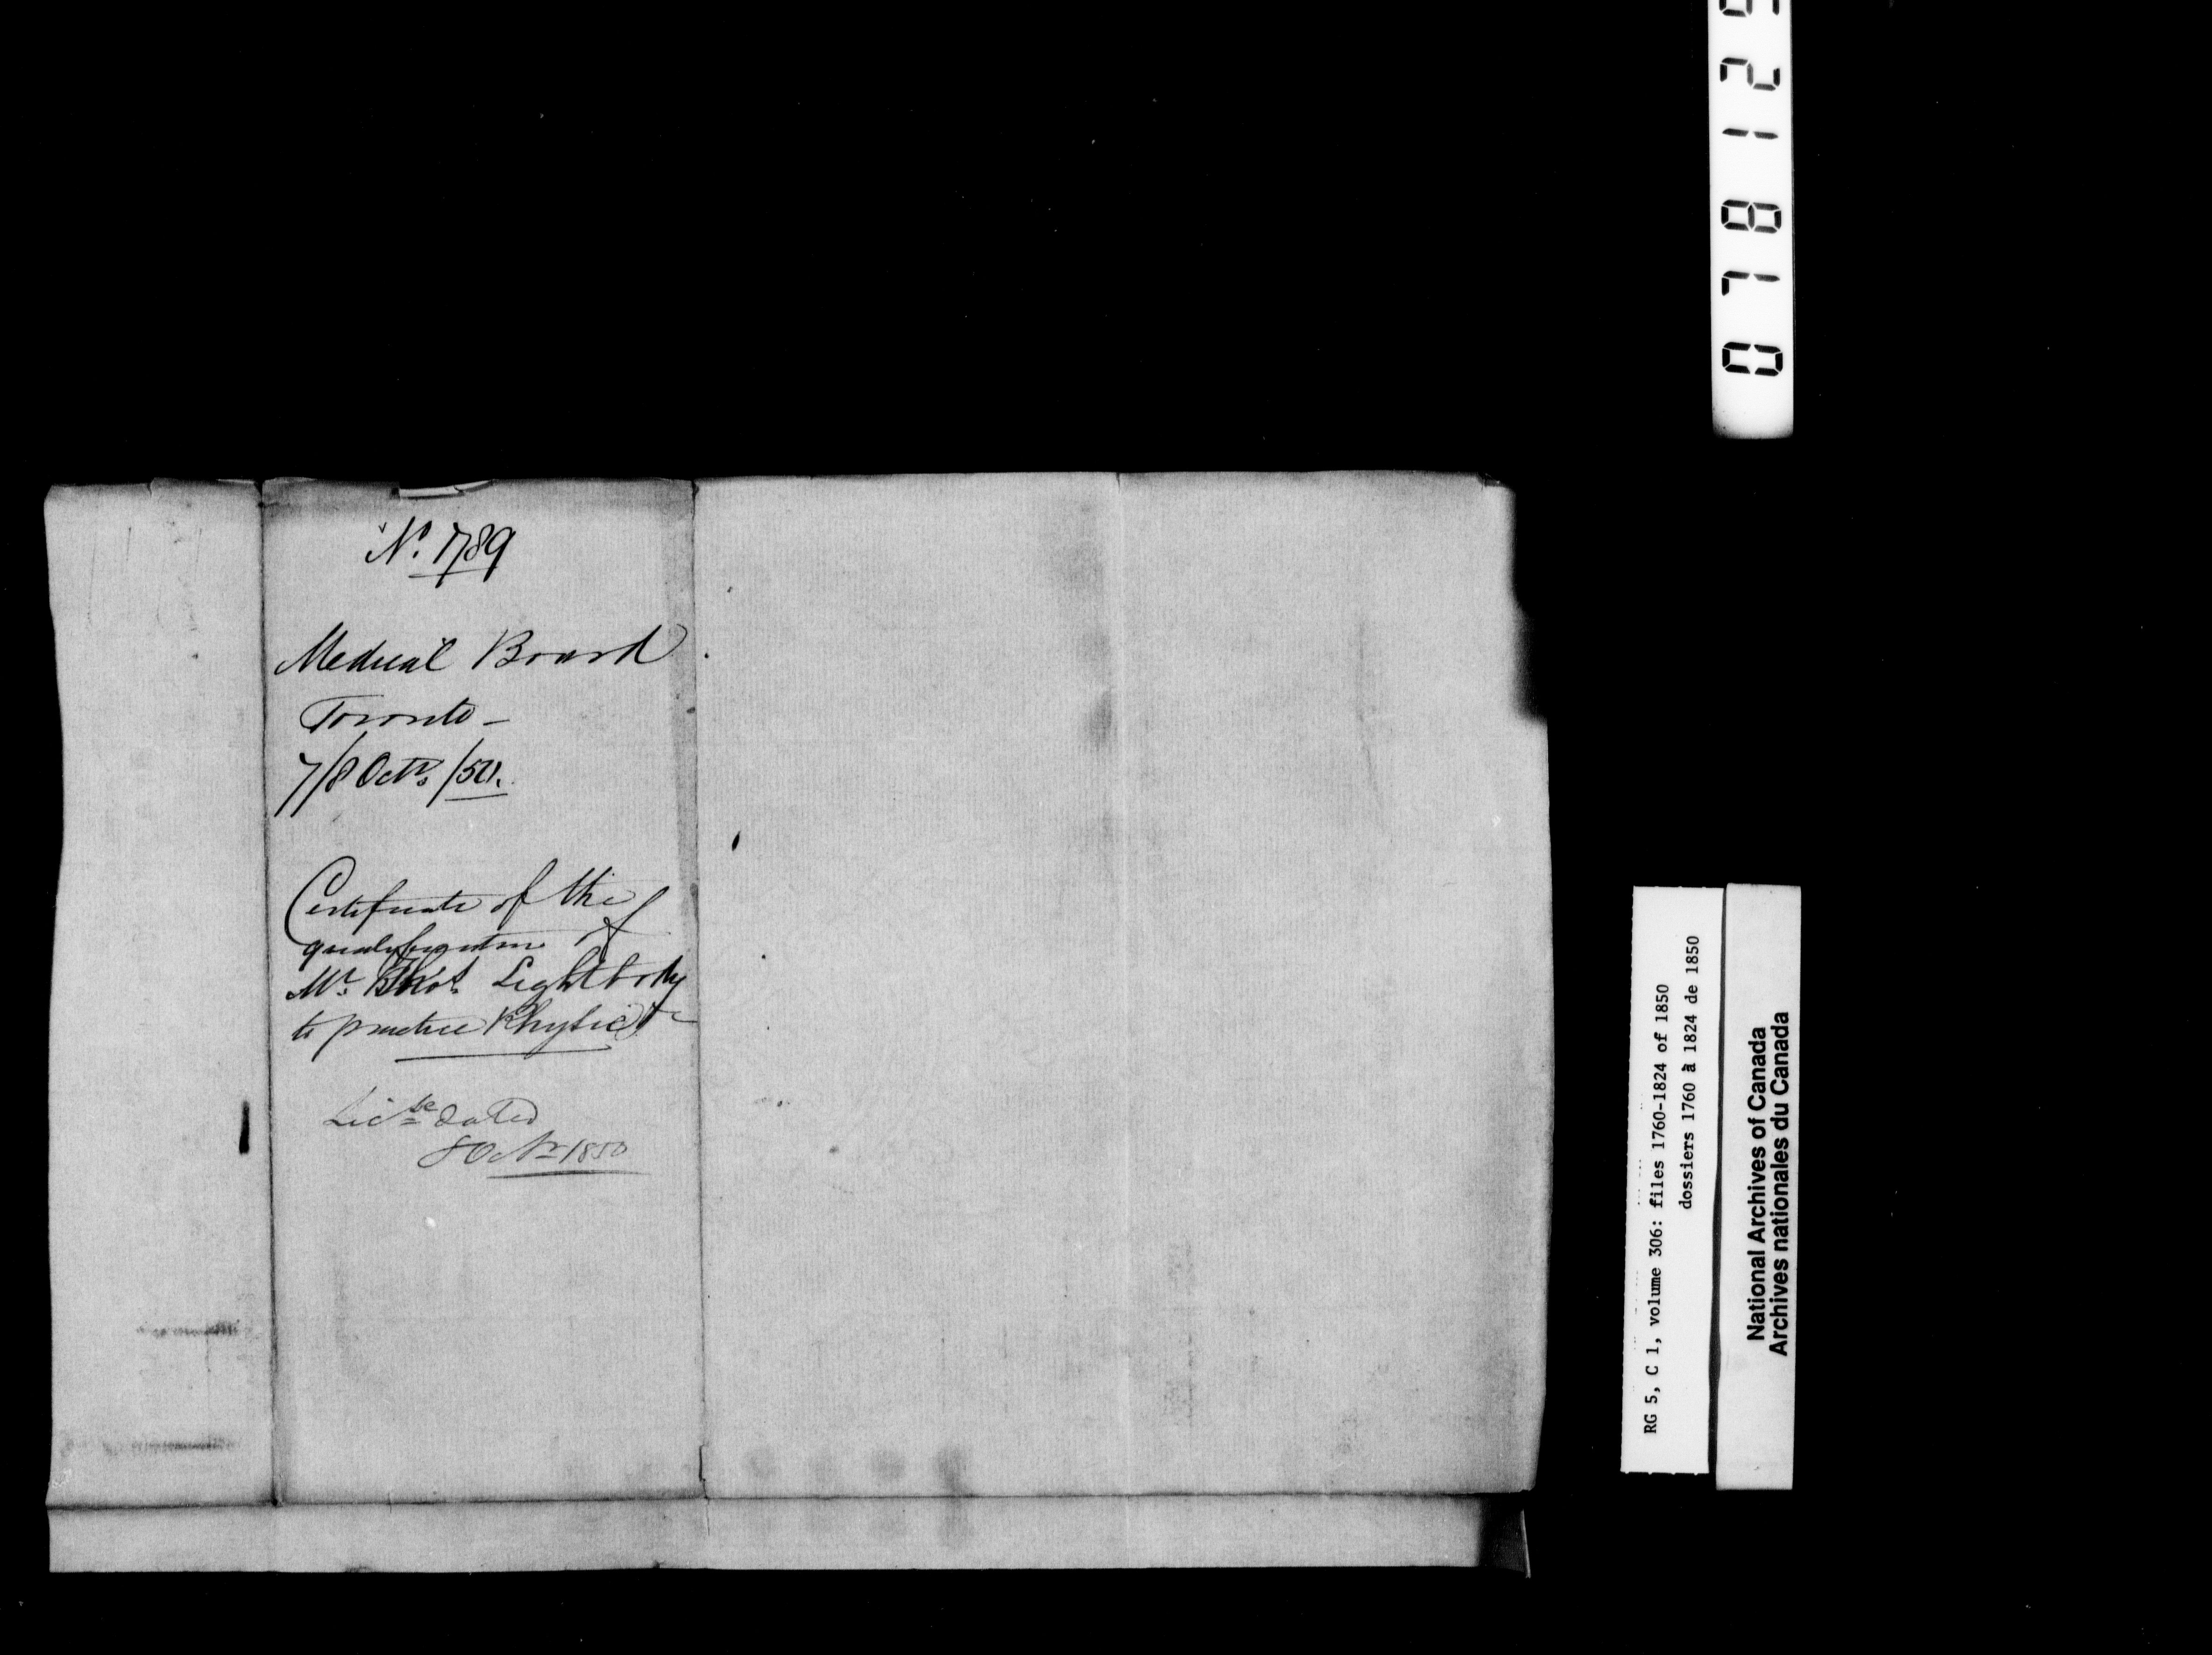 No. 1789
Medical Board
Toronto -
7/8 Octr. /50.
Certificate of the
qualification of
Mr. Thos. Lightbody
to practice Physic &c
Licse dated
8 Octr 1850
078125
RG 5, C 1, volume 306: files 1760-1824 of 1850
dossiers 1760 à 1824 de 1850
National Archives of Canada
Archives nationales du Canada